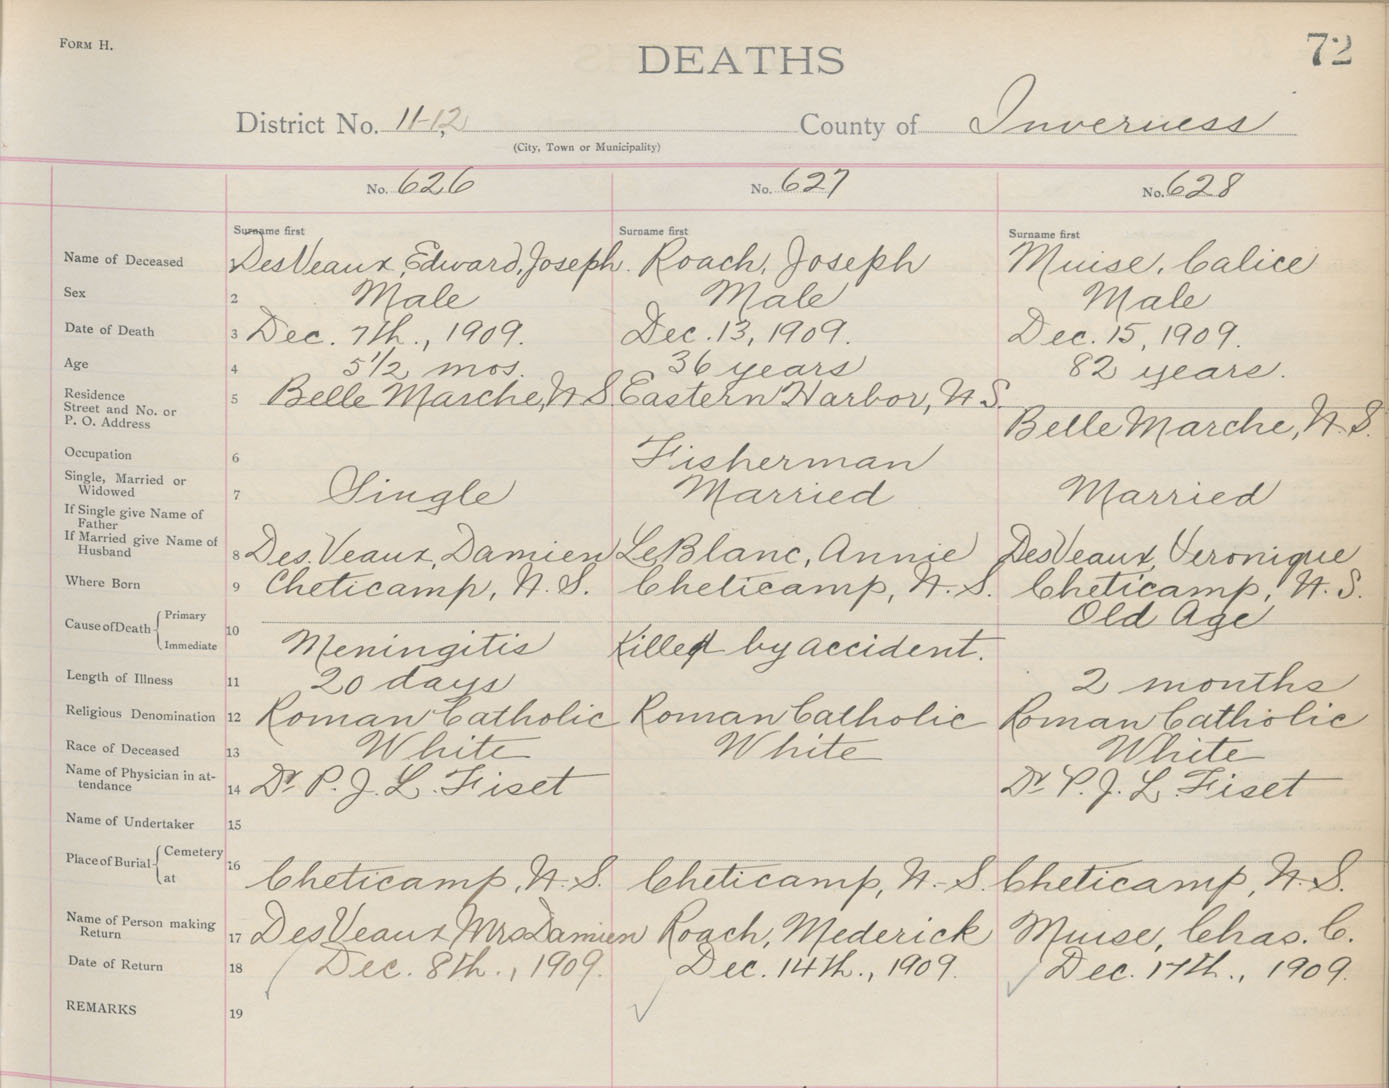 FORM H.
72
DEATHS
District No. 11-12, County of Inverness
(City, Town or Municipality)
No. 626 No. 627 No. 628
Surname first Surname first Surname first
Name of Deceased 1 DesVeaux, Edward, Joseph. Roach, Joseph Muise, Calice
Sex 2 Male Male Male
Date of Death 3 Dec. 7th., 1909. Dec. 13, 1909. Dec. 15, 1909.
Age 4 5 1/2 mos. 36 years 82 years.
Residence
Street and No. or
P. O. Address 5 Belle Marche, N.S. Eastern Harbor, N.S. Belle Marche, N.S.
Occupation 6 Fisherman
Single, Married or
Widowed 7 Single Married Married
If Single give Name of
Father
If Married give Name of
Husband 8 Des.Veaux, Damien LeBlanc, Annie DesVeaux, Veronique
Where Born 9 Cheticamp, N. S. Cheticamp, N. S. Cheticamp, N. S.
Cause of Death Primary Old Age
10
Immediate Meningitis Killed by accident.
Length of Illness 11 20 days 2 months
Religious Denomination 12 Roman Catholic Roman Catholic Roman Catholic
Race of Deceased 13 White White White
Name of Physician in at-
tendance 14 Dr. P. J. L. Fiset Dr. P. J. L. Fiset
Name of Undertaker 15
Place of Burial Cemetery
16
at Cheticamp, N. S. Cheticamp, N. S. Cheticamp, N. S.
Name of Person making
Return 17 DesVeaux Mrs Damien Roach, Mederick Muise, Chas. C.
Date of Return 18 Dec. 8th., 1909. Dec. 14th., 1909. Dec. 17th., 1909.
REMARKS 19